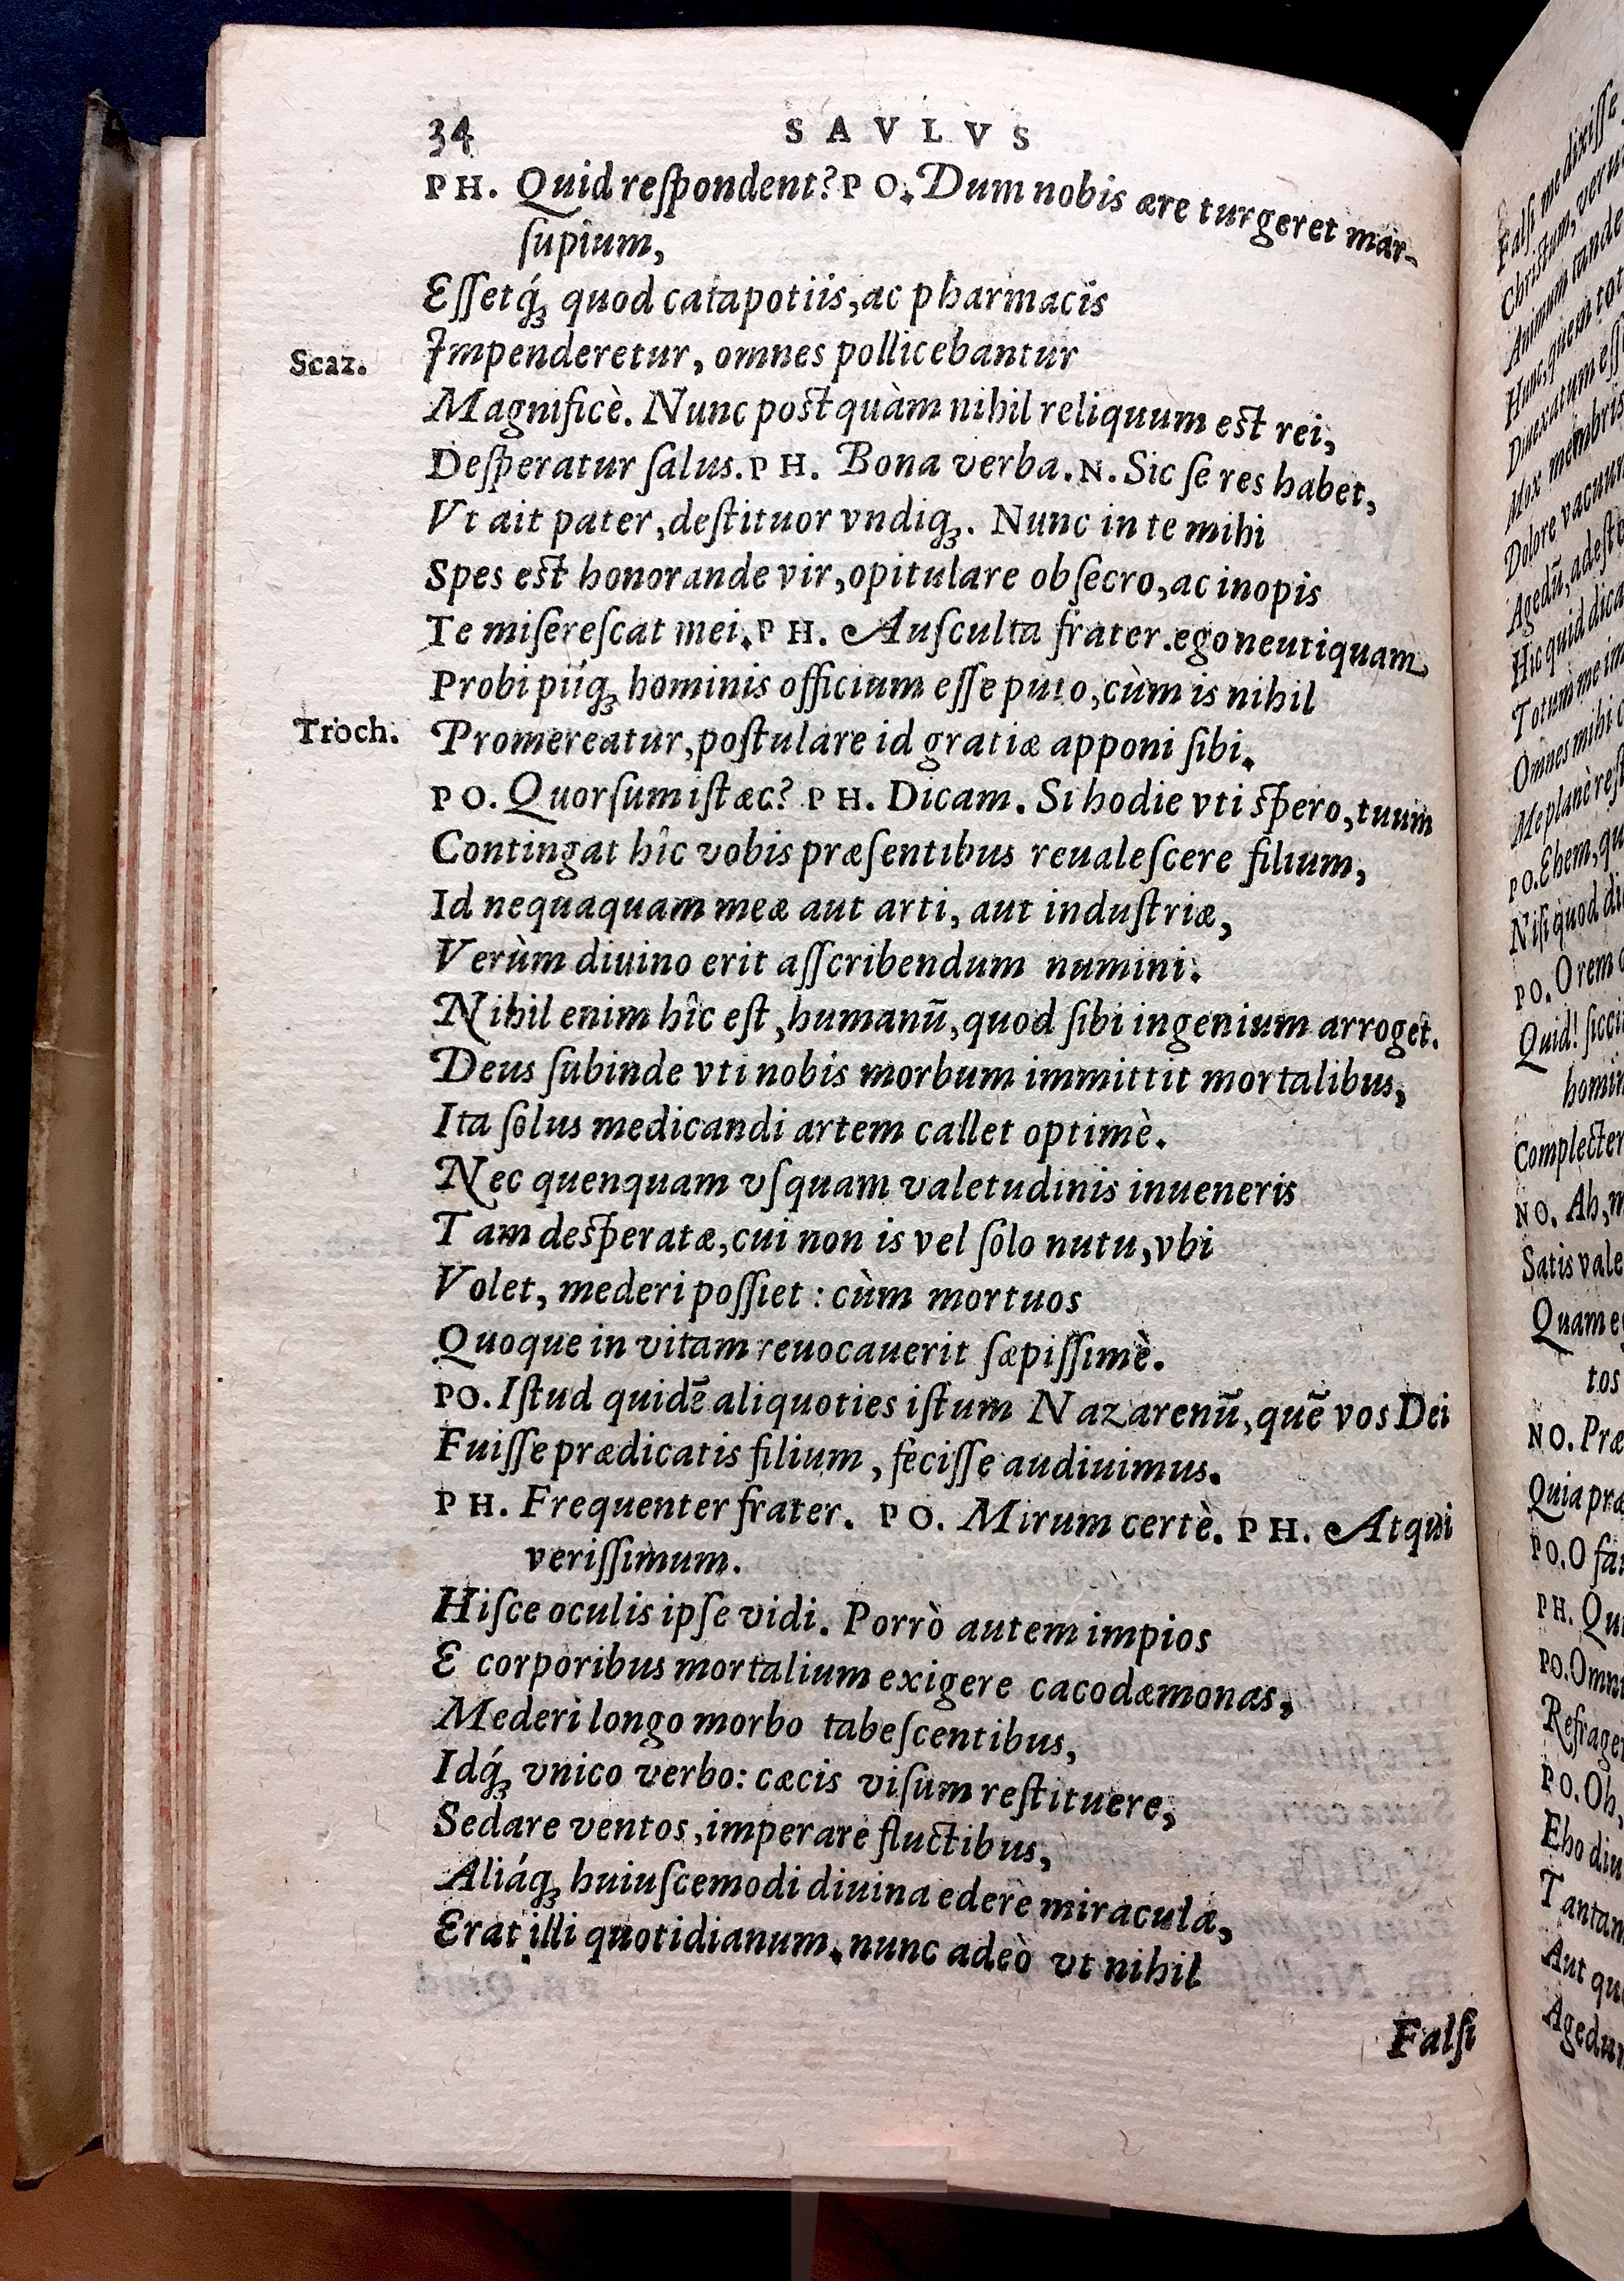 34 SAVLVS
PH. Quid reſpondent? PO. Dum nobis ære turgeret mar-
ſupium,
Eſſetq́ꝫ quod catapotiis, ac pharmacis
Scaz. Impenderetur, omnes pollicebantur
Magnificè. Nunc postquàm nihil reliquum est rei,
Deſperatur ſalus. PH. Bona verba. N. Sic ſe res habet,
Vt ait pater, deſtituor vndiqꝫ. Nunc in te mihi
Spes est honorande vir, opitulare obſecro, ac inopis
Te miſereſcat mei. PH. Auſculta frater. ego neutiquam
Probi piíqꝫ hominis officium eſſe puto, cùm is nihil
Troch. Promereatur, poſtulare id gratiæ apponi ſibi.
PO. Quorſum iſtæc? PH. Dicam. Si hodie vti spero, tuum
Contingat hîc vobis præſentibus reualeſcere filium,
Id nequaquam meæ aut arti, aut induſtriæ,
Verùm diuino erit aſſcribendum numini:
Nihil enim hîc eſt, humanū, quod ſibi ingenium arroget.
Deus ſubinde vti nobis morbum immittit mortalibus,
Ita ſolus medicandi artem callet optimè.
Nec quenquam vſquam valetudinis inueneris
Tam desperatæ, cui non is vel ſolo nutu, vbi
Volet, mederi poſſiet : cùm mortuos
Quoque in vitam reuocauerit ſæpiſſimè.
PO. Iſtud quidē aliquoties iſtum Nazarenū, quē vos Dei
Fuiſſe prædicatis filium, feciſſe audiuimus.
PH. Frequenter frater. PO. Mirum certè. PH. Atqui
veriſſimum.
Hiſce oculis ipſe vidi. Porrò autem impios
E corporibus mortalium exigere cacodæmonas,
Mederi longo morbo tabeſcentibus,
Idq́ꝫ vnico verbo: cæcis viſum reſtituere,
Sedare ventos, imperare fluctibus,
Aliáqꝫ huiuſcemodi diuina edere miracula,
Erat illi quotidianum. nunc adeò vt nihil
Falſi
Falſi me dixiſſe
Chriſtum, veru
Animum tande
Hunc, quem tot
Diuexatum eſſ
Mox membris
Dolore vacuum
Agedū, adeſte
Hic quid dica
Totum me im
Omnes mihi
Me planè reſt
PO. Ehem, qu
Niſi quod di
PO. O rem
Quid! ſicci
homin
Complecter
NO. Ah, m
Satis vale
Quam e
tos
NO. Præ
Quia præ
PO. O fa
PH. Qu
PO. Omni
Refrage
PO. Oh,
Eho diu
Tantam
Aut qu
Agedum